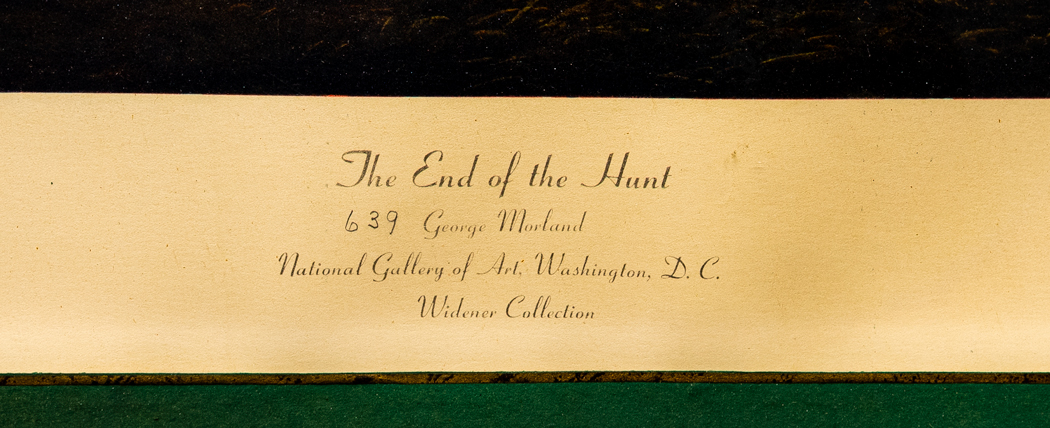 The End of the Hunt
639 George Morland
National Gallery of Art, Washington, D. C.
Widener Collection